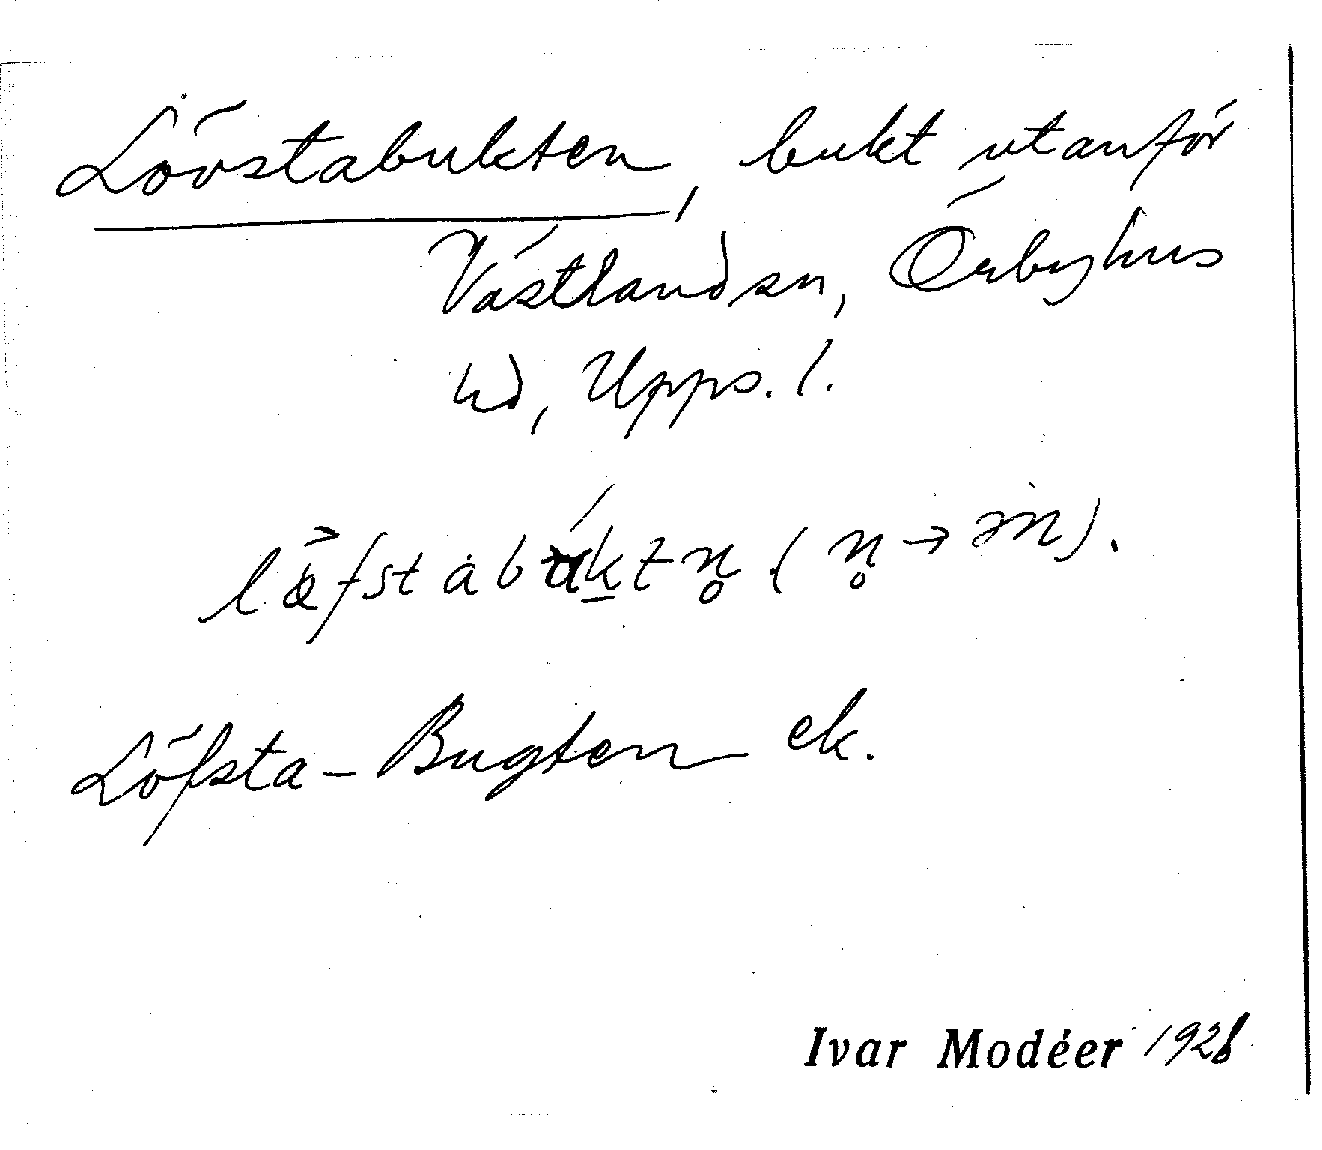 Lövstabukten, bukt utanför
Västlandsn, Örbyhus
hd, Upps. l.
(n̥ → ən).
Löfsta-Bugten ek.
Ivar Modéer 1928